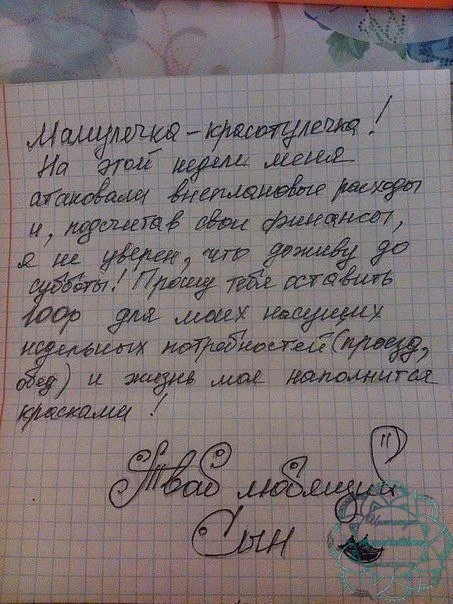 Мамулечка-красотулечка!
На этой недели меня
атаковали внеплановые расходы
и, подсчитав свои финансы,
я не уверен, что доживу до
субботы! Прошу тебя оставить
100р для моих насущих
недельных потребностей (проезд,
обед) и жизнь моя наполнится
красками!
Твой любящий
Сын